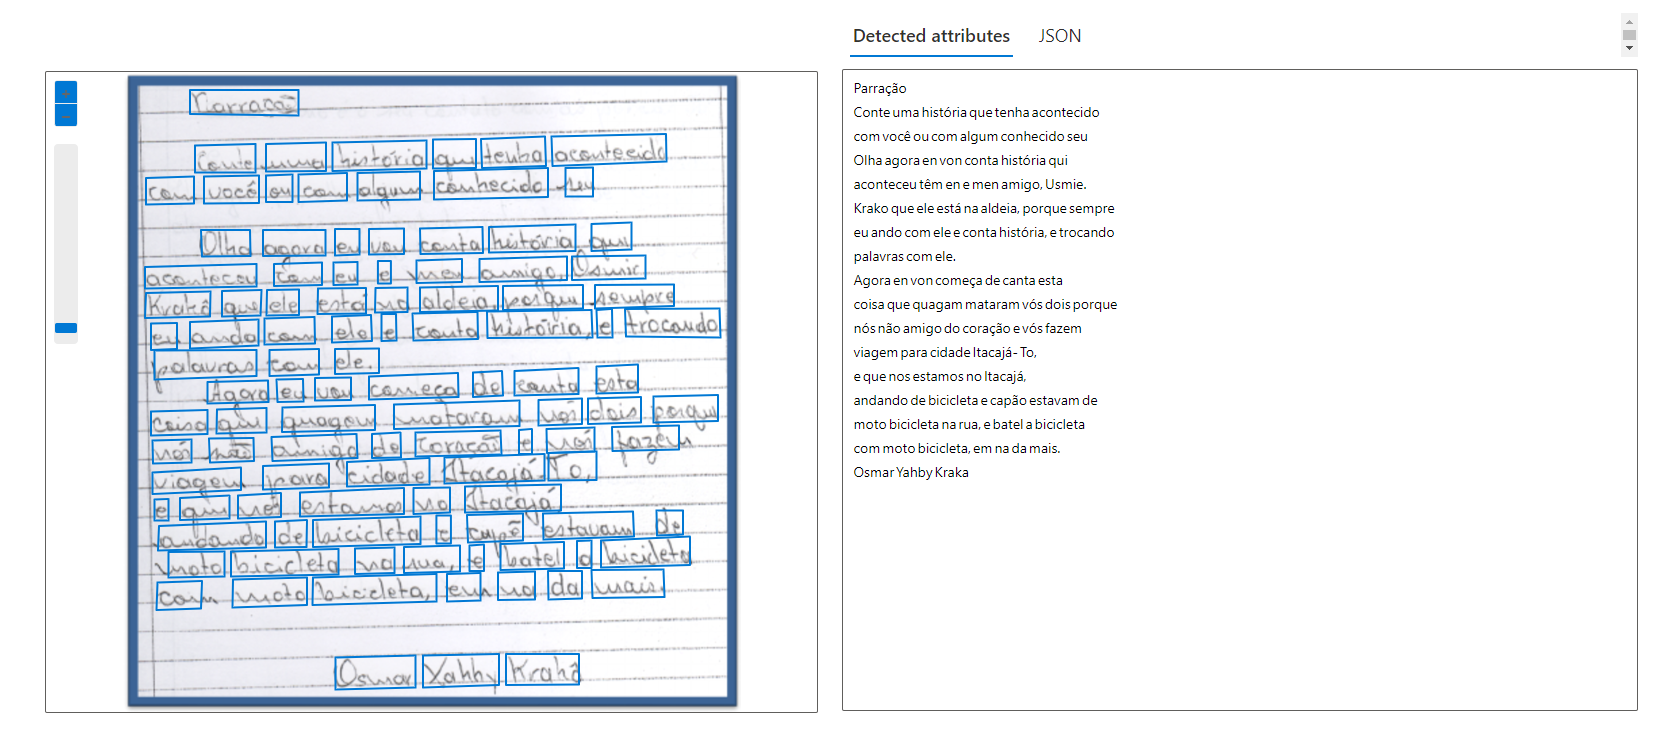 Detected attributes JSON
Narração
Conte uma história que tenha acontecido
com você ou com algum conhecido seu
Olha agora eu vou conta história qui
aconteceu com eu e meu amigo, Osmir
Krahô que ele está na aldeia, porque sempre
eu ando com ele e conta história, e trocando
palavras com ele.
Agora eu vou começa de conta esta
coisa qui quagam mataram nós dois porque
nós não amigo do coração e nós fazem
viagem para cidade Itacajá-To,
e qui nós estamos no Itacajá
andando de bicicleta e cupẽ estavam de
moto bicicleta na rua, e batel a bicicleta
com moto bicicleta, em na da mais.
Osmar Yahhy Krahô
Parração
Conte uma história que tenha acontecido
com você ou com algum conhecido seu
Olha agora en von conta história qui
aconteceu têm en e men amigo, Usmie.
Krako que ele está na aldeia, porque sempre
eu ando com ele e conta história, e trocando
palavras com ele.
Agora en von começa de canta esta
coisa que quagam mataram vós dois porque
nós não amigo do coração e vós fazem
viagem para cidade Itacajá- To,
e que nos estamos no Itacajá,
andando de bicicleta e capão estavam de
moto bicicleta na rua, e batel a bicicleta
com moto bicicleta, em na da mais.
Osmar Yahby Kraka